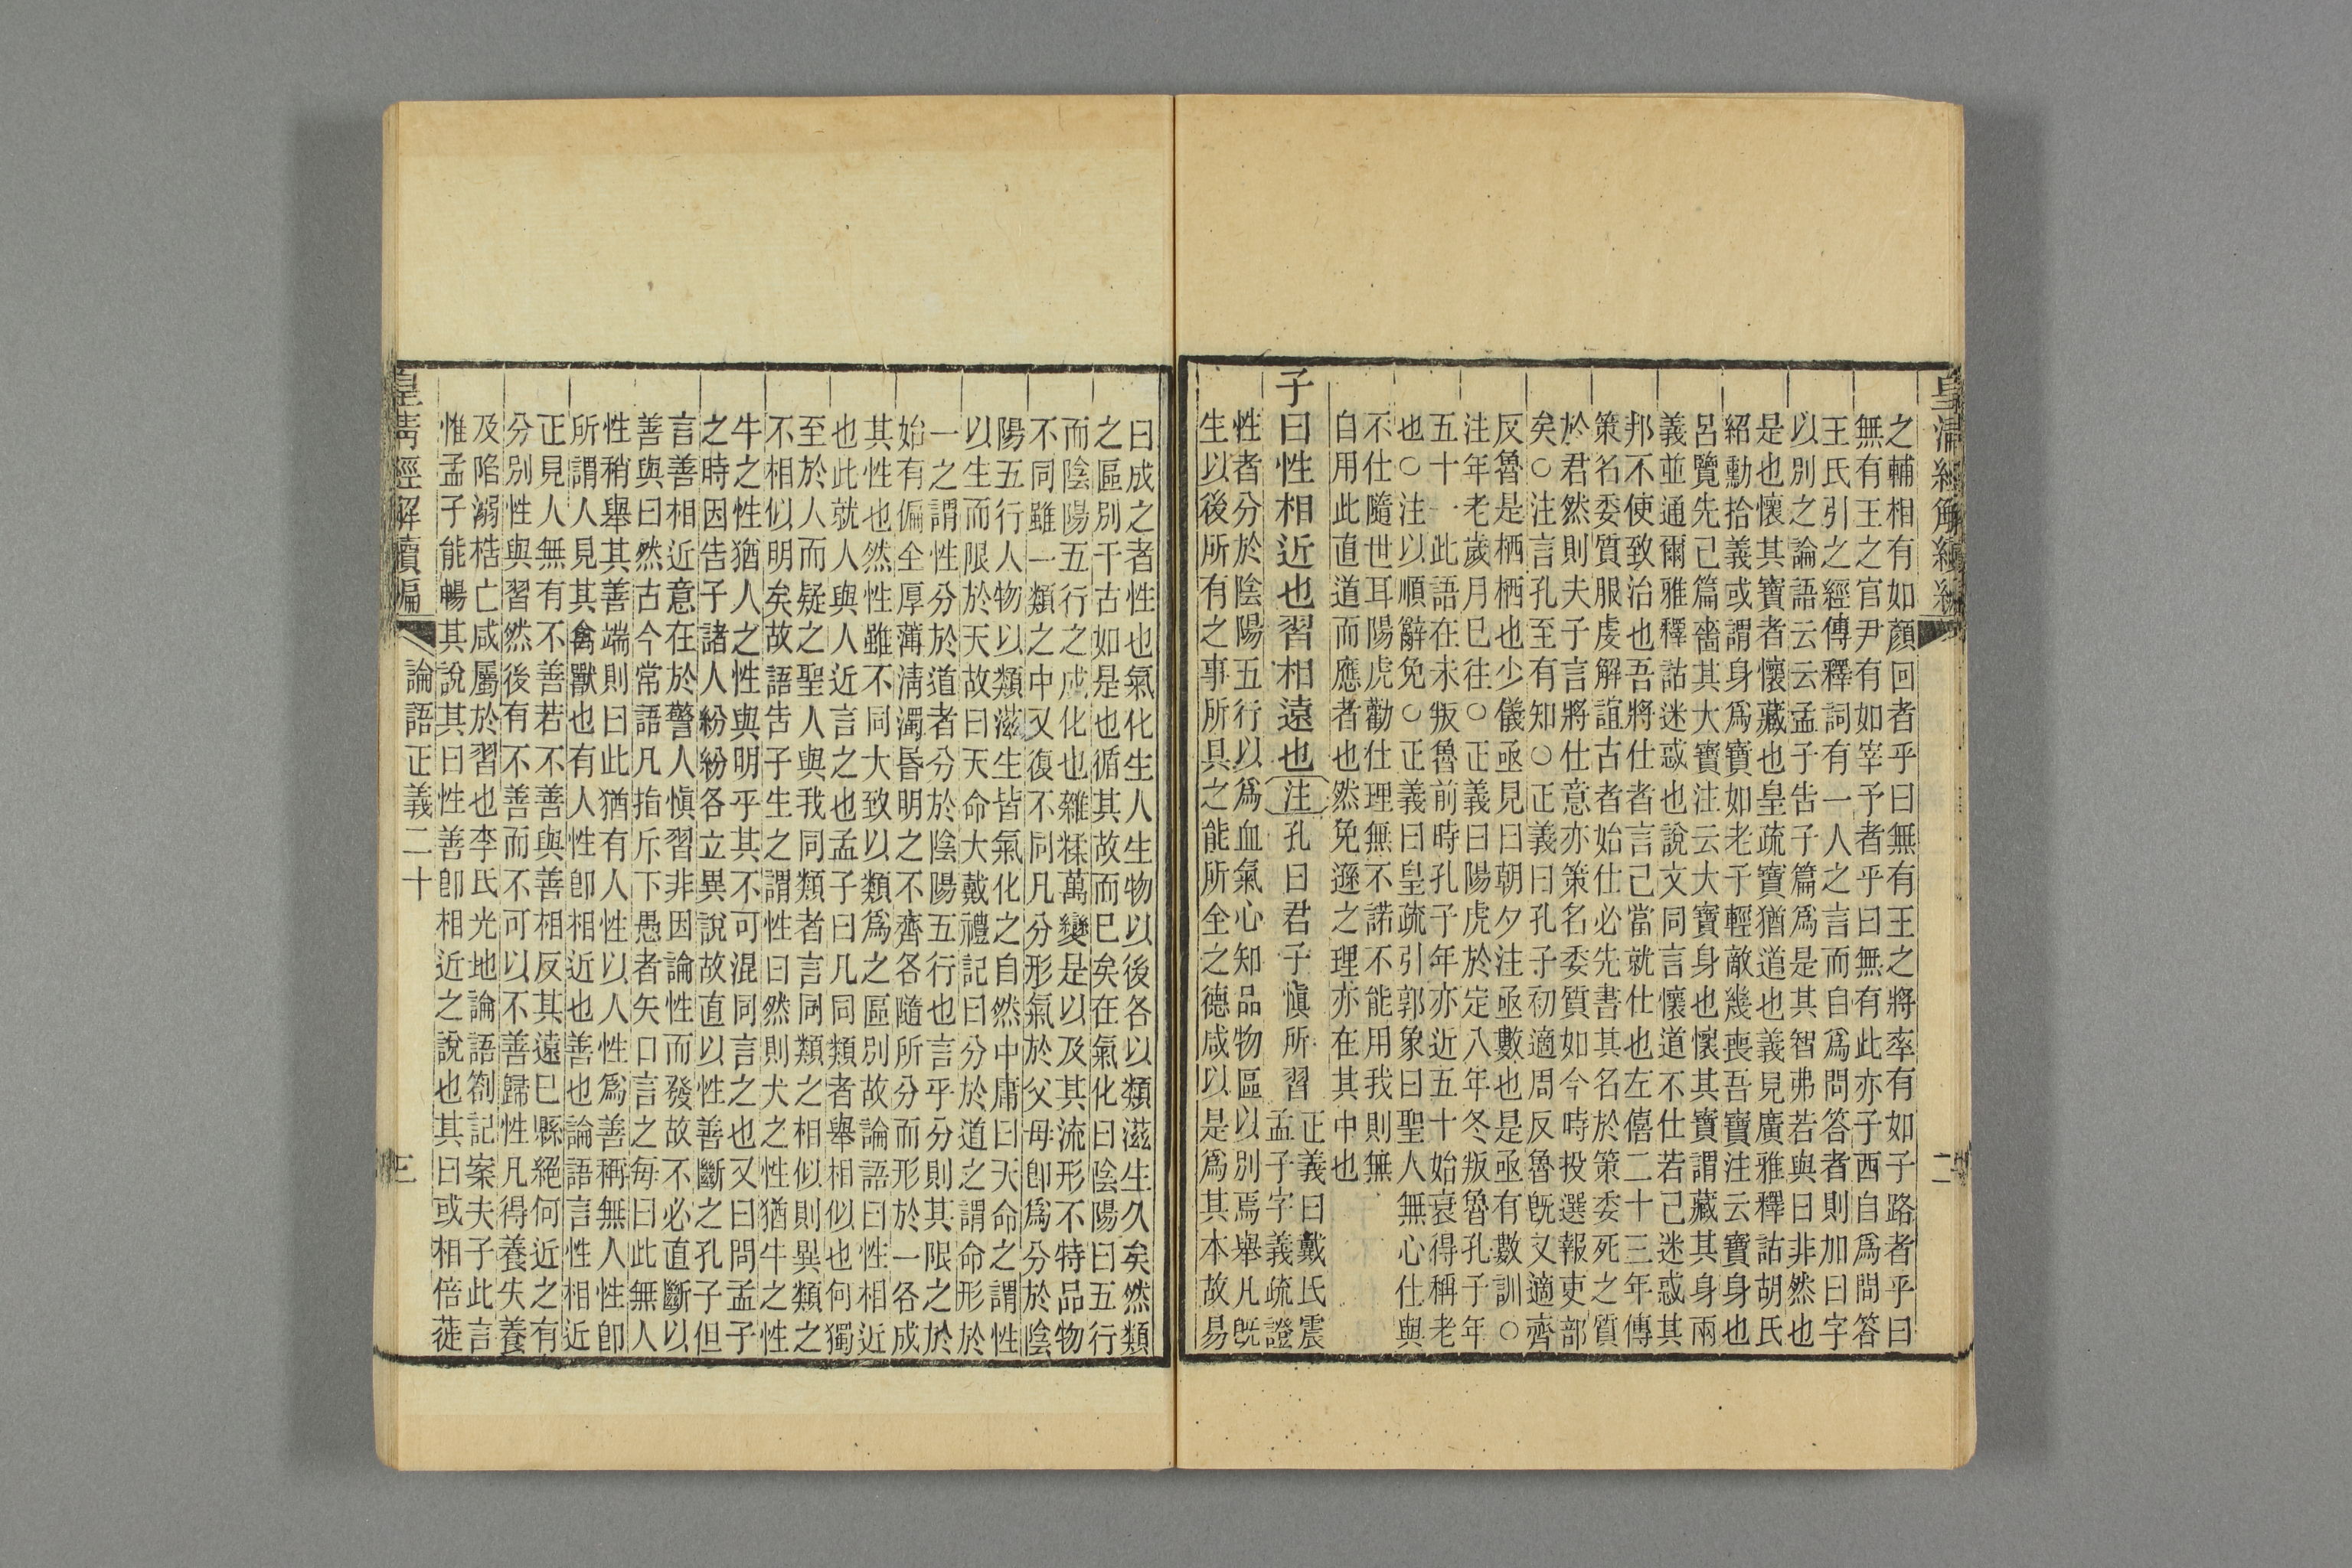 皇清經解續編
二
之輔相有如顏回者乎曰無有王之將率有如子路者乎曰
無有王之官尹有如宰予者乎曰無有此亦子西自爲問答
王氏引之經傳釋詞有一人之言而自爲問答者則加曰字
以別之論語云云孟子告子篇爲是其智弗若與曰非然也
是也懷其寶者懷藏也皇疏寶猶道也義見廣雅釋詁胡氏
紹勳拾義或謂身爲寶如老子輕敵幾喪吾寶注云寶身也
呂覽先已篇嗇其大寶注云大寶身也懷其寶謂藏其身兩
義並通爾雅釋詁迷惑也說文同言懷道不仕若已迷惑其
邦不使致治也吾將仕者言己當就仕也左僖二十三年傳
策名委質服虔解誼古者始仕必先書其名於策委死之質
於君然則夫子言將仕意亦策名委質如今時投選報吏部
矣○注言孔至有知○正義曰孔子初適周反魯既又適齊
反魯是栖栖也少儀亟見曰朝夕注亟數也是亟有數訓○
注年老歲月已往○正義曰陽虎於定八年冬叛魯孔子年
五十一此語在未叛魯前時孔子年亦近五十始衰得稱老
也○注以順辭免○正義曰皇疏引郭象曰聖人無心仕與
不仕隨世耳陽虎勸仕理無不諾不能用我則無
自用此直道而應者也然免遜之理亦在其中也
子曰性相近也習相遠也注孔曰君子愼所習正義曰戴氏震
孟子字義疏證
性者分於陰陽五行以爲血氣心知品物區以別焉舉凡既
生以後所有之事所具之能所全之德咸以是爲其本故易
曰成之者性也氣化生人生物以後各以類滋生久矣然類
之區別千古如是也循其故而已矣在氣化曰陰陽曰五行
而陰陽五行之成化也雜糅萬變是以及其流形不特品物
不同雖一類之中又復不同凡分形氣於父母卽爲分於陰
陽五行人物以類滋生皆氣化之自然中庸曰天命之謂性
以生而限於天故曰天命大戴禮記曰分於道之謂命形於
一之謂性分於道者分於陰陽五行也言乎分則其限之於
始有偏全厚薄淸濁昏明之不齊各隨所分而形於一各成
其性也然性雖不同大致以類爲之區別故論語曰性相近
也此就人與人近言之也孟子曰凡同類者舉相似也何獨
至於人而疑之聖人與我同類者言同類之相似則異類之
不相似明矣故語告子生之謂性曰然則犬之性猶牛之性
牛之性猶人之性與明乎其不可混同言之也又曰問孟子
之時因告子諸人紛紛各立異說故直以性善斷之孔子但
言善相近意在於警人愼習非因論性而發故不必直斷以
善與曰然古今常語凡指斥下愚者矢口言之每曰此無人
性稍舉其善端則曰此猶有人性以人性爲善稱無人性卽
所謂人見其禽獸也有人性卽相近也善也論語言性相近
正見人無有不善若不善與善相反其遠已縣絕何近之有
分別性與習然後有不善而不可以不善歸性凡得養失養
及陷溺梏亡咸屬於習也李氏光地論語劄記案夫子此言
惟孟子能暢其說其曰性善卽相近之說也其曰或相倍蓰
皇淸經解續編
論語正義二十
三